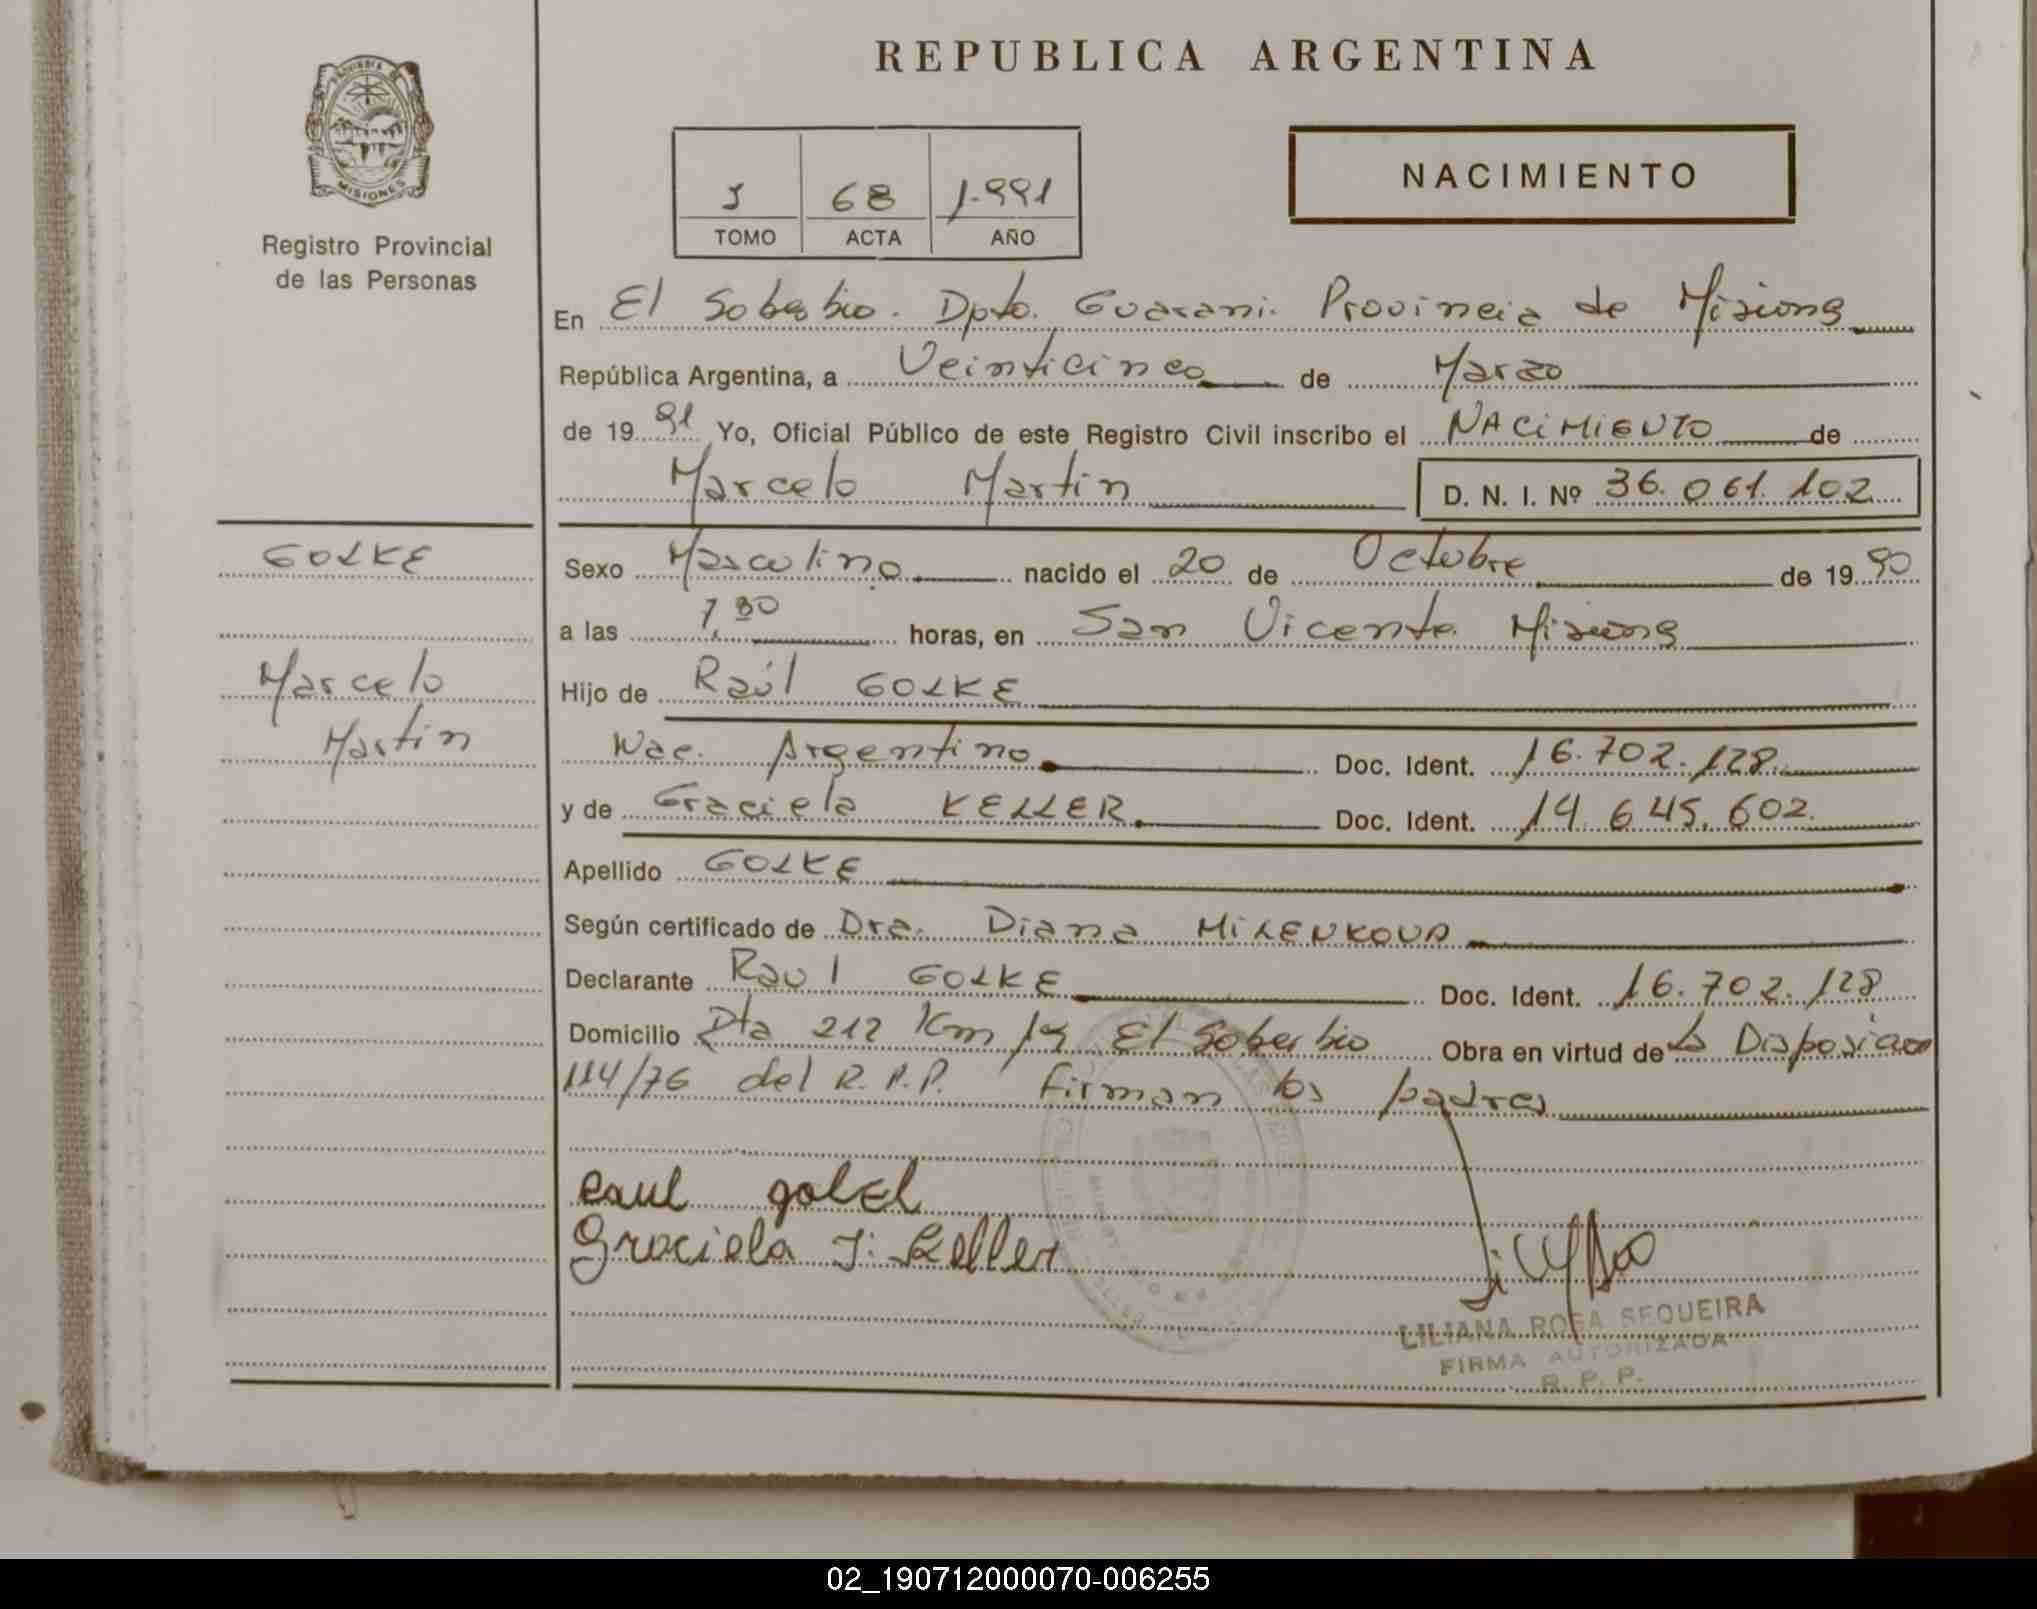 REPUBLICA ARGENTINA
PROVINCIA DE
MISIONES
Registro Provincial
de las Personas
68 1.991
TOMO ACTA AÑO
NACIMIENTO
En El Soberbio. Dpto. Guarani. Provincia de Misiones
República Argentina, a Veinticinco de Marzo
de 1991 Yo, Oficial Público de este Registro Civil inscribo el NACIMIENTO de
Marcelo Martin D. N. I. Nº 36.061.102
GOLKE
Marcelo
Martin
Sexo Masculino nacido el 20 de Octubre de 1990
a las 7,30 horas, en San Vicente Misiones
Hijo de Raúl GOLKE
Nac. Argentino Doc. Ident. 16.702.128
y de Graciela KELLER. Doc. Ident. 14.645.602.
Apellido GOLKE
Según certificado de Dra. Diana MILENKOVA
Declarante Raul GOLKE Doc. Ident. 16.702.128
Domicilio Dta 212 Km 14 El Soberbio Obra en virtud de la Disposicion
114/76 del R.P.P. Firman los padres
Raul golcl
Graciela I. Keller
LILIANA ROSA SEQUEIRA
FIRMA AUTORIZADA
R. P. P.
02_190712000070-006255